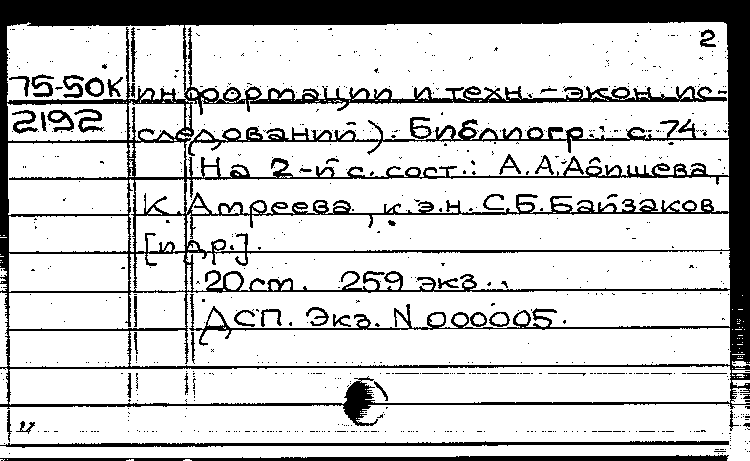 2
75-50К информации и техн.-экон. ис-
2192 следований). Библиогр.: с. 74.
На 2-й с. сост.: А.А.Абишева,
К.Амреева, к.э.н. С.Б.Байзаков
[и др.].
20 ст. 259 экз.
ДСП. Экз. N 000005.